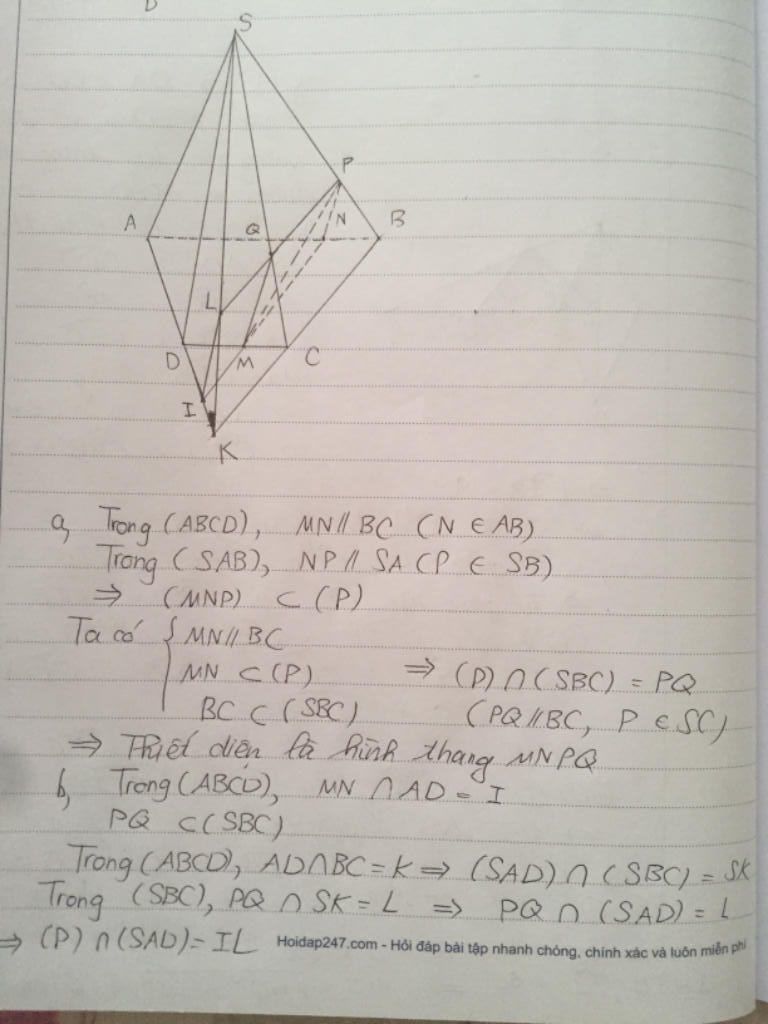 D
S
P
A
Q
N
B
L
D
M
C
I
K
a, Trong (ABCD), MN // BC (N ∈ AB)
Trong (SAB), NP // SA (P ∈ SB)
⇒ (MNP) ⊂ (P)
Ta có { MN // BC
MN ⊂ (P) ⇒ (P) ∩ (SBC) = PQ
BC ⊂ (SBC) (PQ // BC, P ∈ SC)
⇒ Thiết diện là hình thang MNPQ
b, Trong (ABCD), MN ∩ AD = I
PQ ⊂ (SBC)
Trong (ABCD), AD ∩ BC = K ⇒ (SAD) ∩ (SBC) = SK
Trong (SBC), PQ ∩ SK = L ⇒ PQ ∩ (SAD) = L
⇒ (P) ∩ (SAD) = IL
Hoidap247.com - Hỏi đáp bài tập nhanh chóng, chính xác và luôn miễn phí